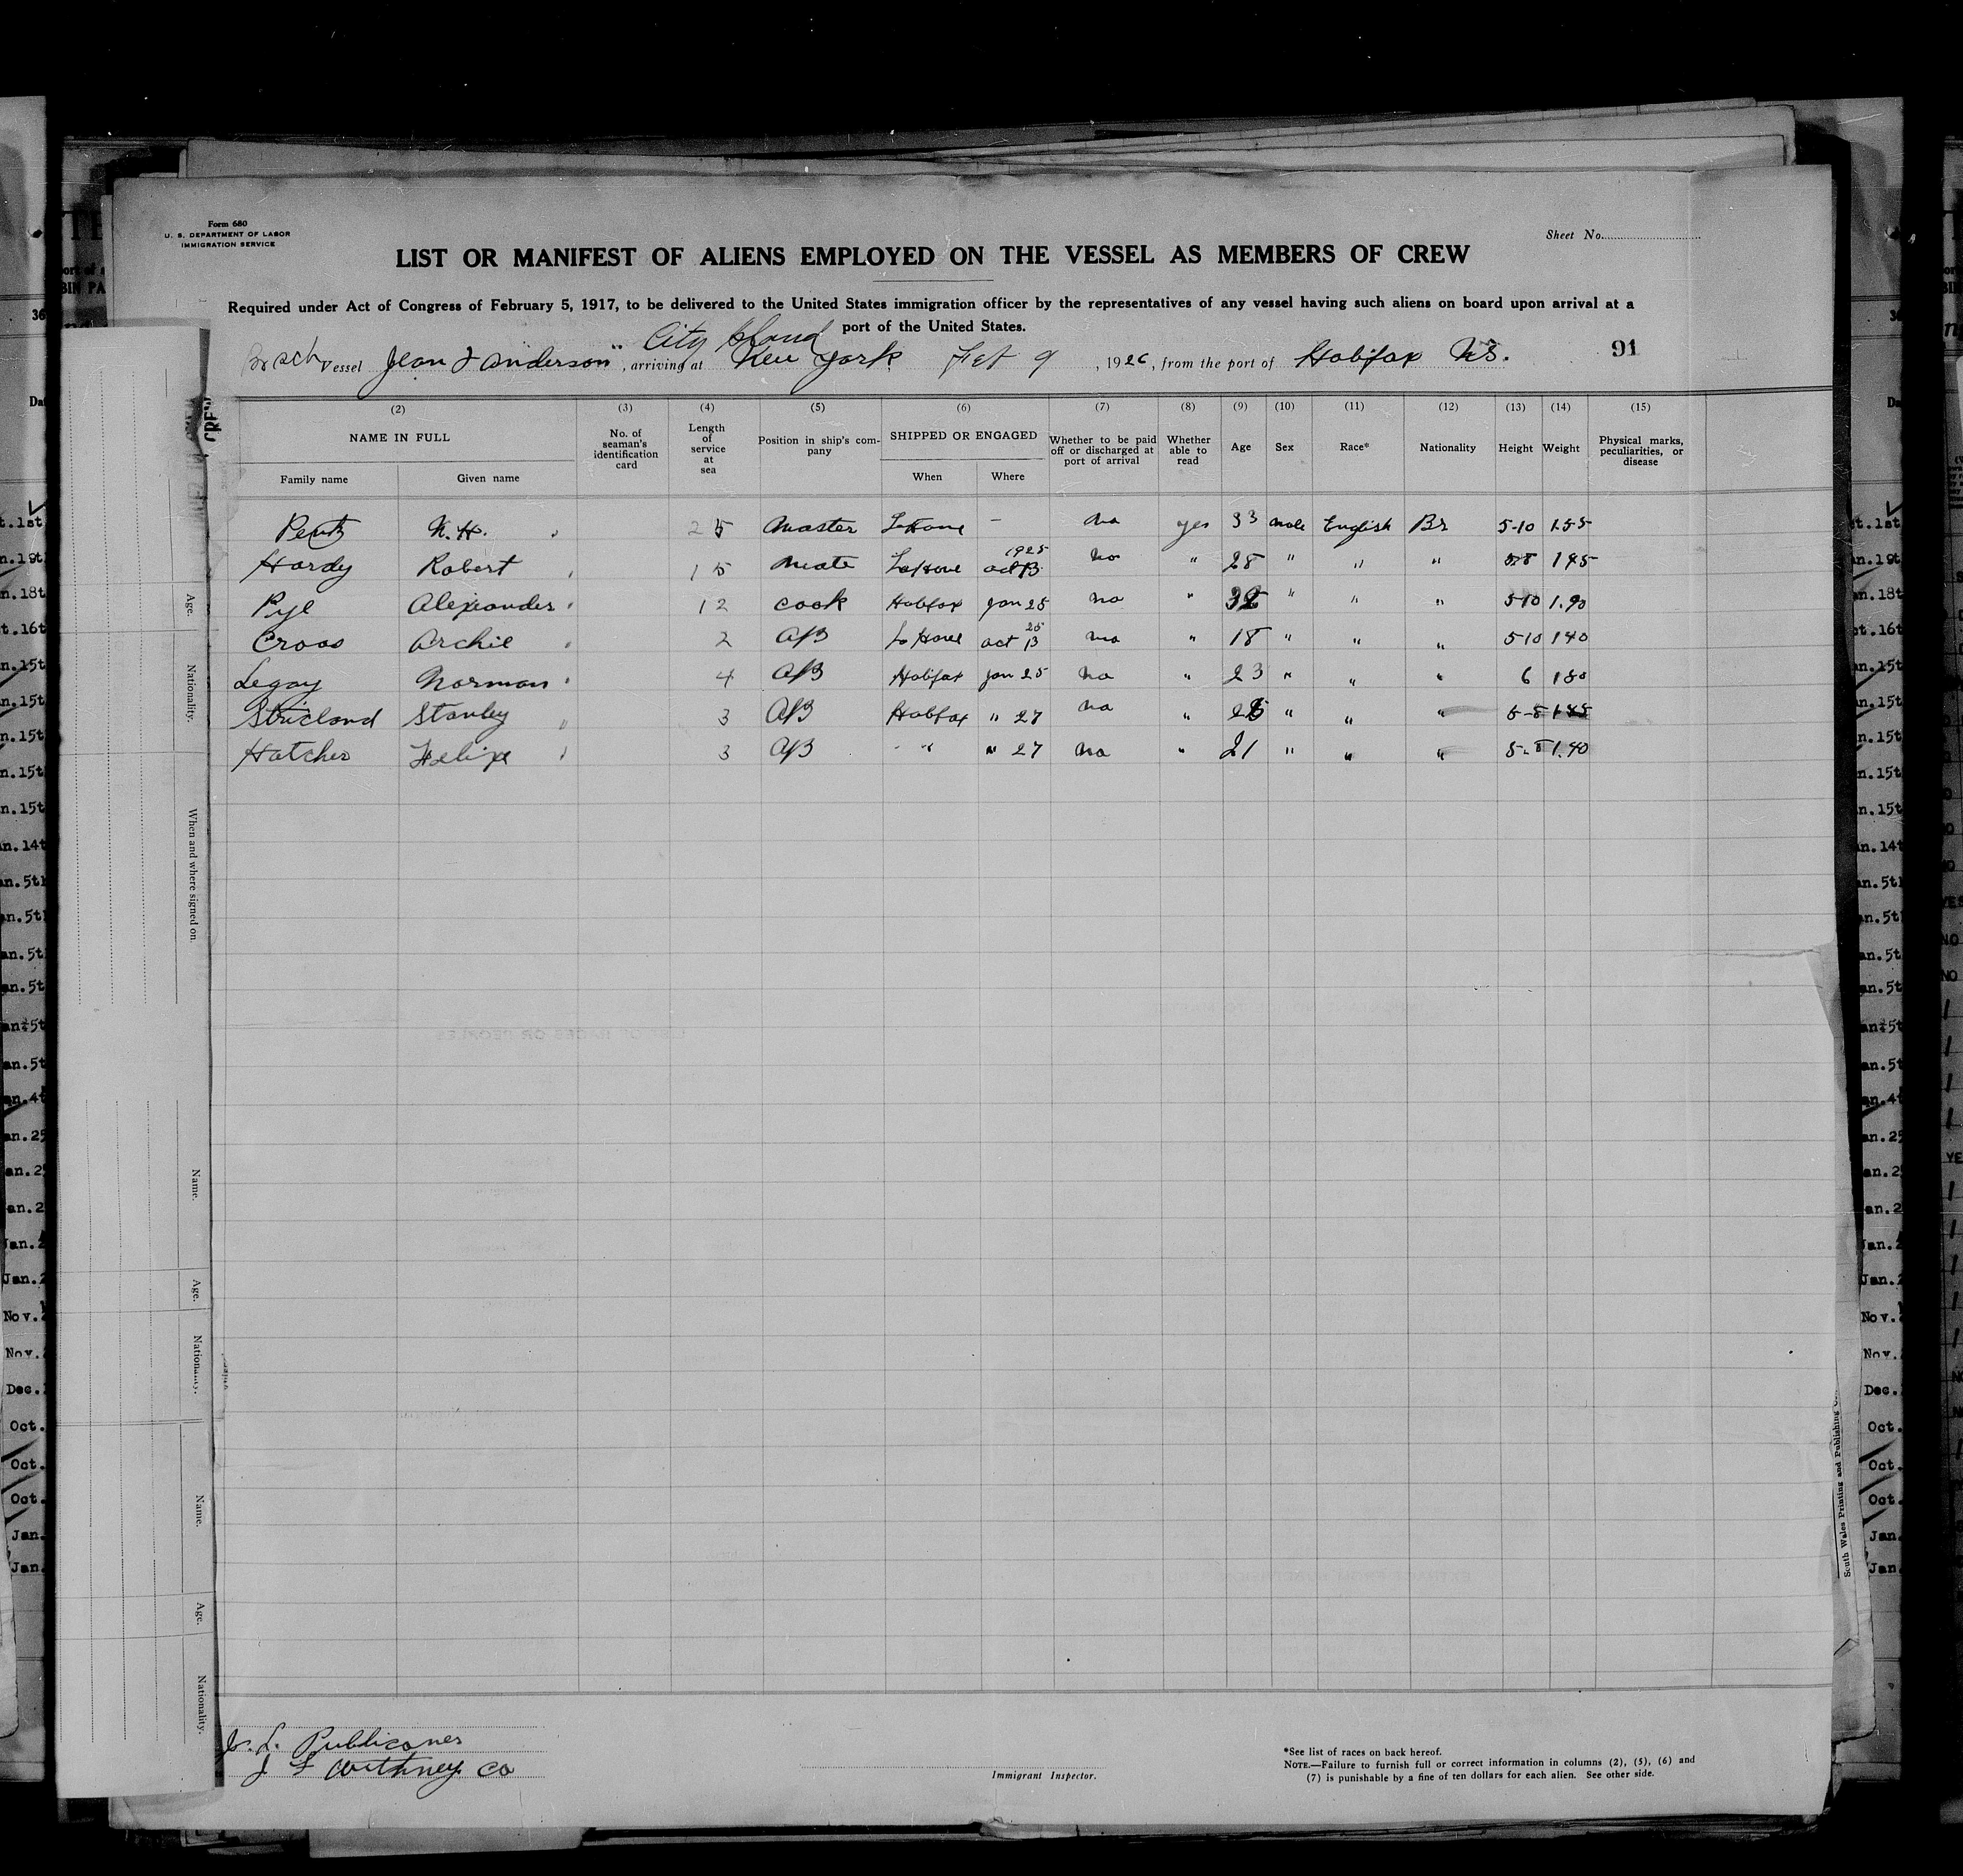 Form 680
U. S. DEPARTMENT OF LABOR
IMMIGRATION SERVICE
Sheet No.
LIST OR MANIFEST OF ALIENS EMPLOYED ON THE VESSEL AS MEMBERS OF CREW
Required under Act of Congress of February 5, 1917, to be delivered to the United States immigration officer by the representatives of any vessel having such aliens on board upon arrival at a
port of the United States.
City Island
Br Sch Vessel Jean J Anderson", arriving at New York Feb 9, 1926, from the port of Halifax NS. 91
(2) (3) (4) (5) (6) (7) (8) (9) (10) (11) (12) (13) (14) (15)
NAME IN FULL No. of seaman's identification card Length of service at sea Position in ship's company SHIPPED OR ENGAGED Whether to be paid off or discharged at port of arrival Whether able to read Age Sex Race* Nationality Height Weight Physical marks, peculiarities, or disease
Family name Given name When Where
Pentz N. H. 25 Master LaHave - no yes 33 male English Br 5-10 1.55
Hardy Robert 15 Mate LaHave 1925 oct 13 no " 28 " " " 5-8 145
Pyl Alexander 12 cook Halifax Jan 25 no " " " " 5-10 1.90
Cross Archie 2 AB LaHave oct 13 25 no " 18 " " " 5-10 140
Legay Norman 4 AB Halifax Jan 25 no " 23 " " " 6 180
Stricland Stanley 3 AB Halifax " 27 no " " " " 5-8
Hatcher Felix 3 AB " " " 27 no " 21 " " " 5-8 1.40
Age.
Nationality.
When and where signed on.
Name.
Age.
Nationality.
Name.
Age.
Nationality.
J. L. Publicover
J F Withney Co
Immigrant Inspector.
*See list of races on back hereof.
NOTE.—Failure to furnish full or correct information in columns (2), (5), (6) and
(7) is punishable by a fine of ten dollars for each alien. See other side.
South Wales Printing and Publishing